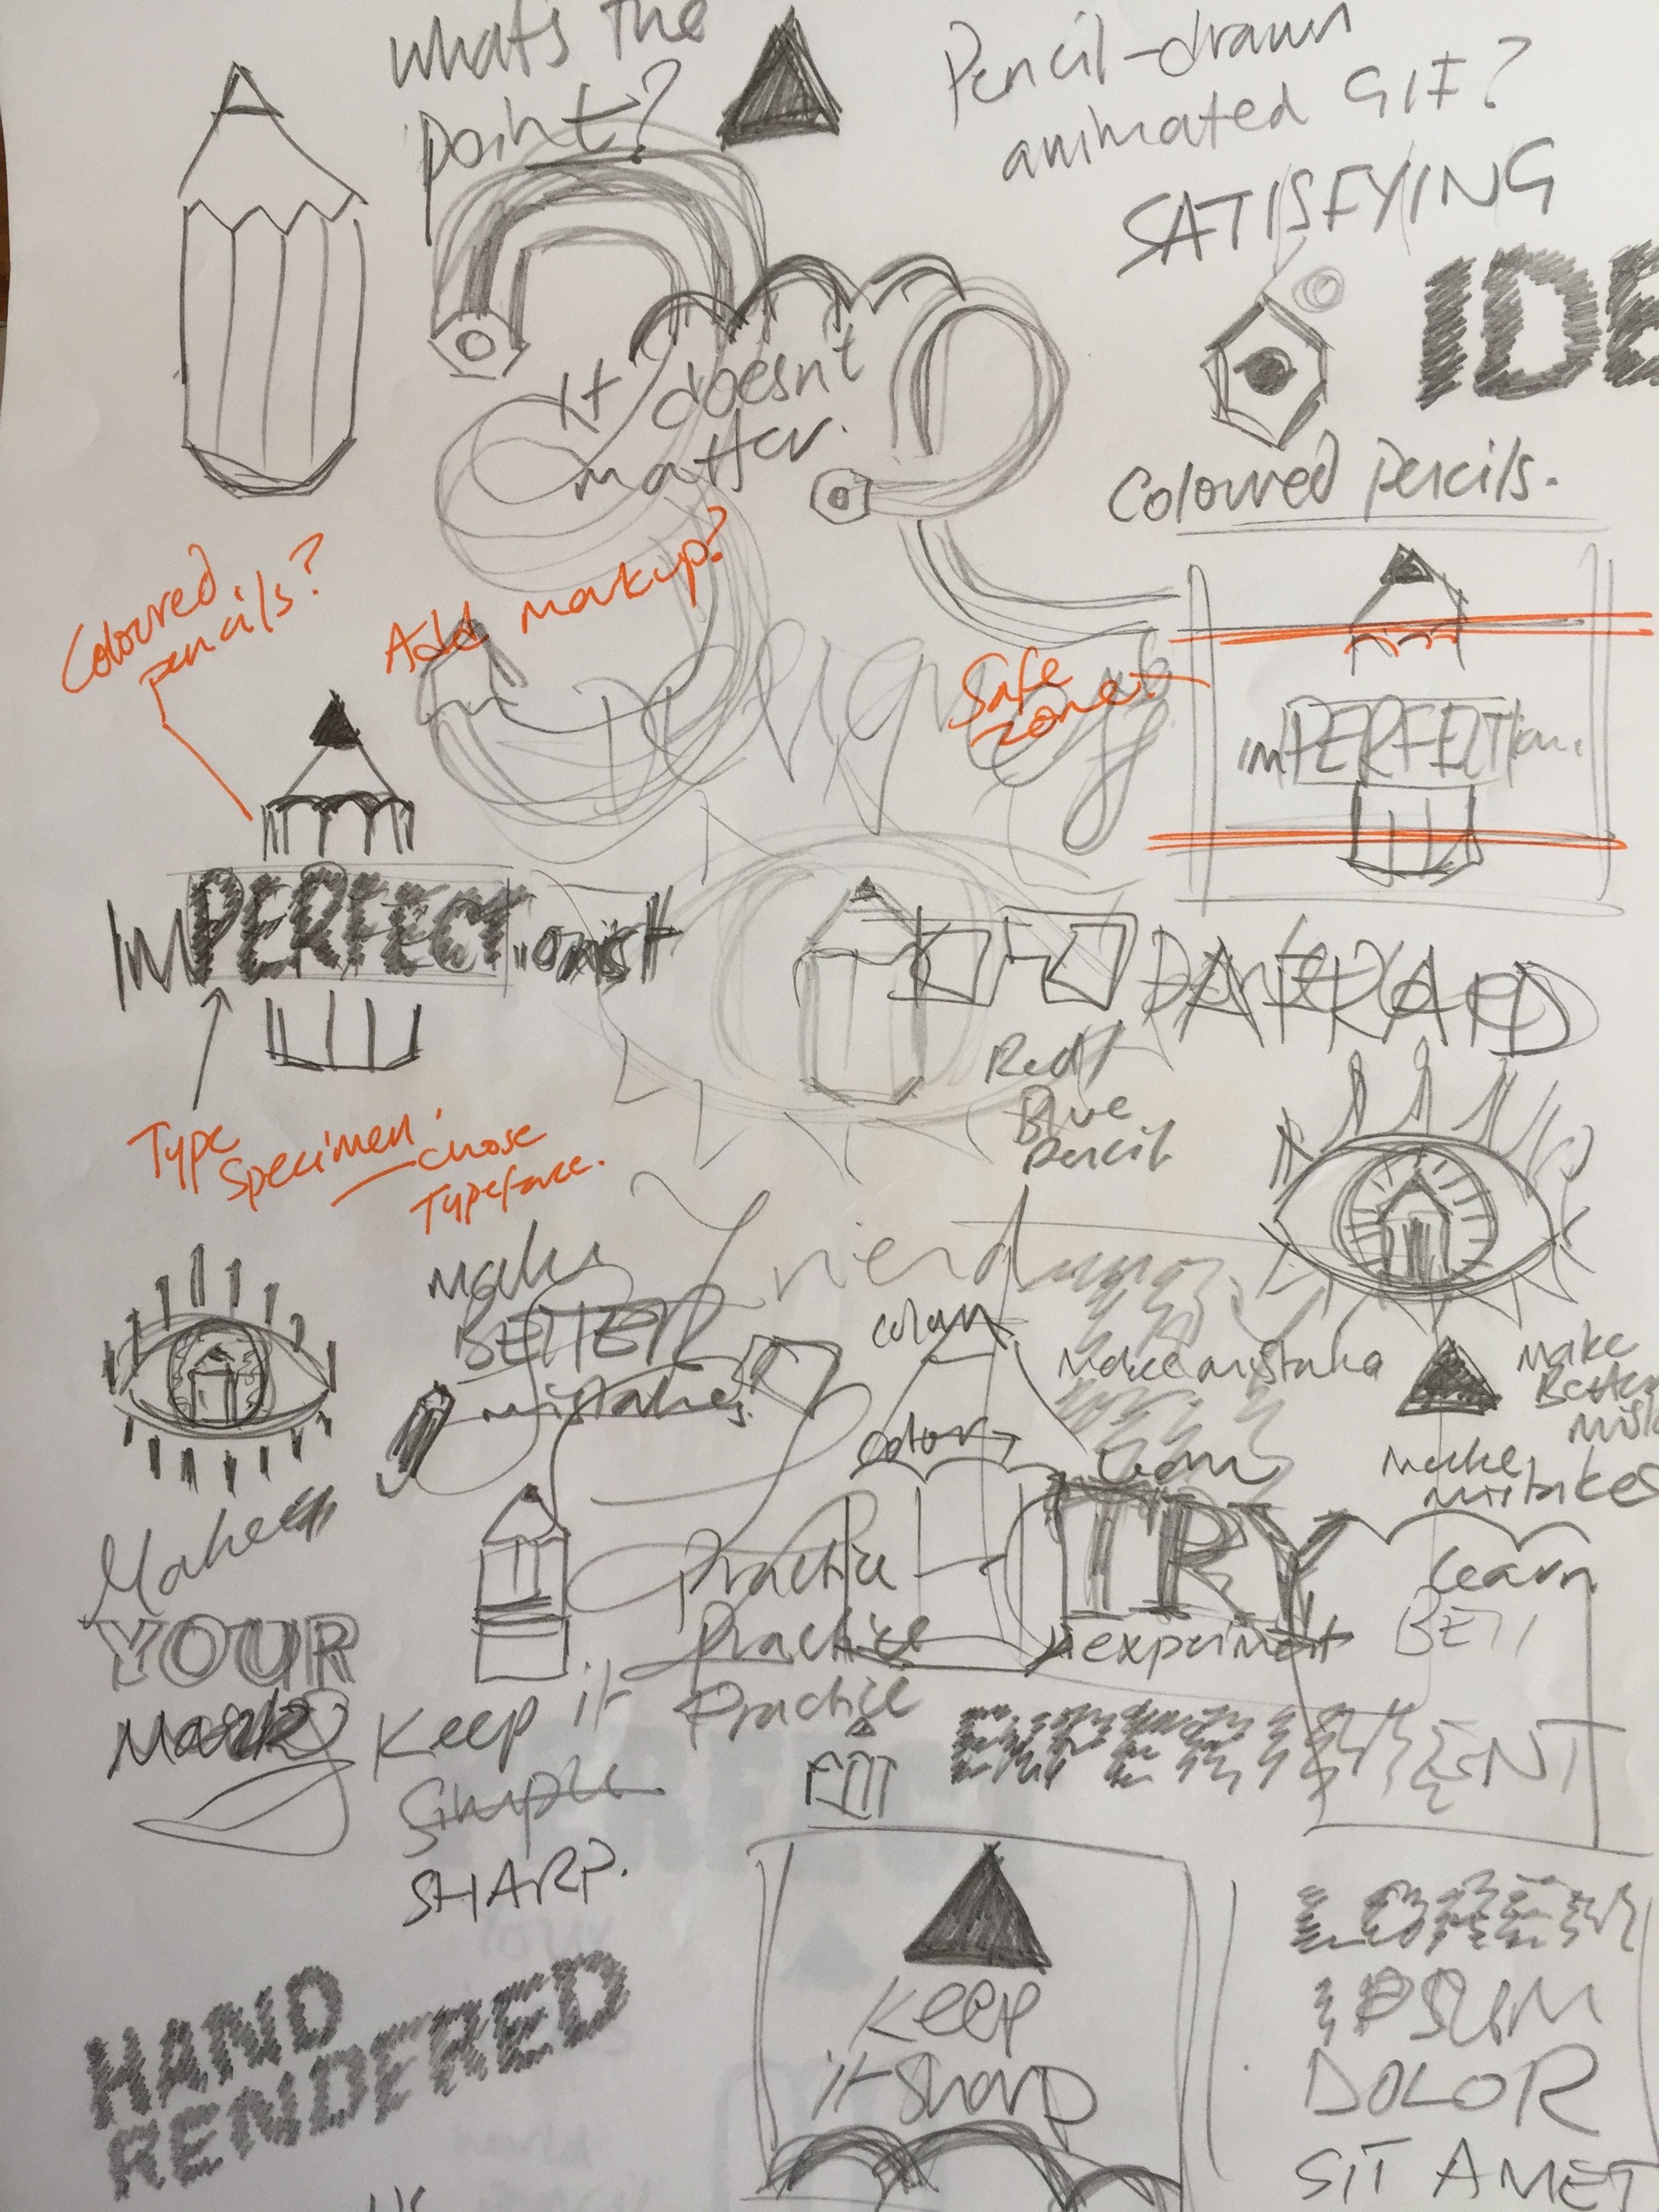 What's the
point?
Pencil-drawn
animated GIF?
SATISFYING
IDE
It doesn't
matter.
Coloured pencils.
Coloured
pencils?
Add markup?
Safe
zone.
imPERFECTion.
ImPERFECTionist
Red/
Blue
pencil
Type
Specimen.
— chose
Typeface.
Make
BETTER
mistakes.
Friend
colour
Make mistake
Make
Better
Mist
color
learn
Make
mistakes
Make
YOUR
Mark
Practice
Practice
Practice
TRY
experiment
learn
BETT
Keep it
Simple
SHARP.
EDIT
EXPERIMENT
Keep
it sharp
LOREM
IPSUM
DOLOR
SIT AMET
HAND
RENDERED